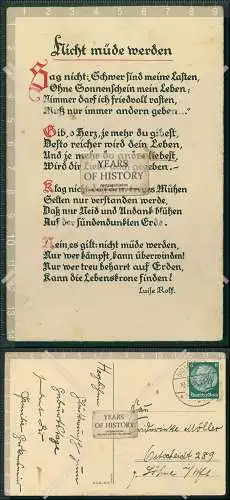 Nicht müde werden
Sag nicht: Schwer sind meine Lasten,
Ohne Sonnenschein mein Leben;
Nimmer darf ich friedvoll rasten,
Muß nur immer andern geben..."
Gib, o Herz, je mehr du gibest,
Desto reicher wird dein Leben,
Und je mehr du andre liebest,
Wird dir Liebe auch gegeben.—
YEARS
OF HISTORY
Klag nicht, Mühen
Selten nur verstanden werde,
Daß nur Neid und Undank blühen
Auf der sündendunklen Erde.
Nein, es gilt nicht müde werden,
Nur wer kämpft, kann überwinden!
Nur wer treu beharrt auf Erden,
Kann die Lebenskrone finden!
Luise Rolf.
Herzlichen
Glückwunsch zum
Geburtstage
sendet Dir
YEARS
OF HISTORY
Frau
Möller
289
Löhne i/Westf.
Deutsches Reich